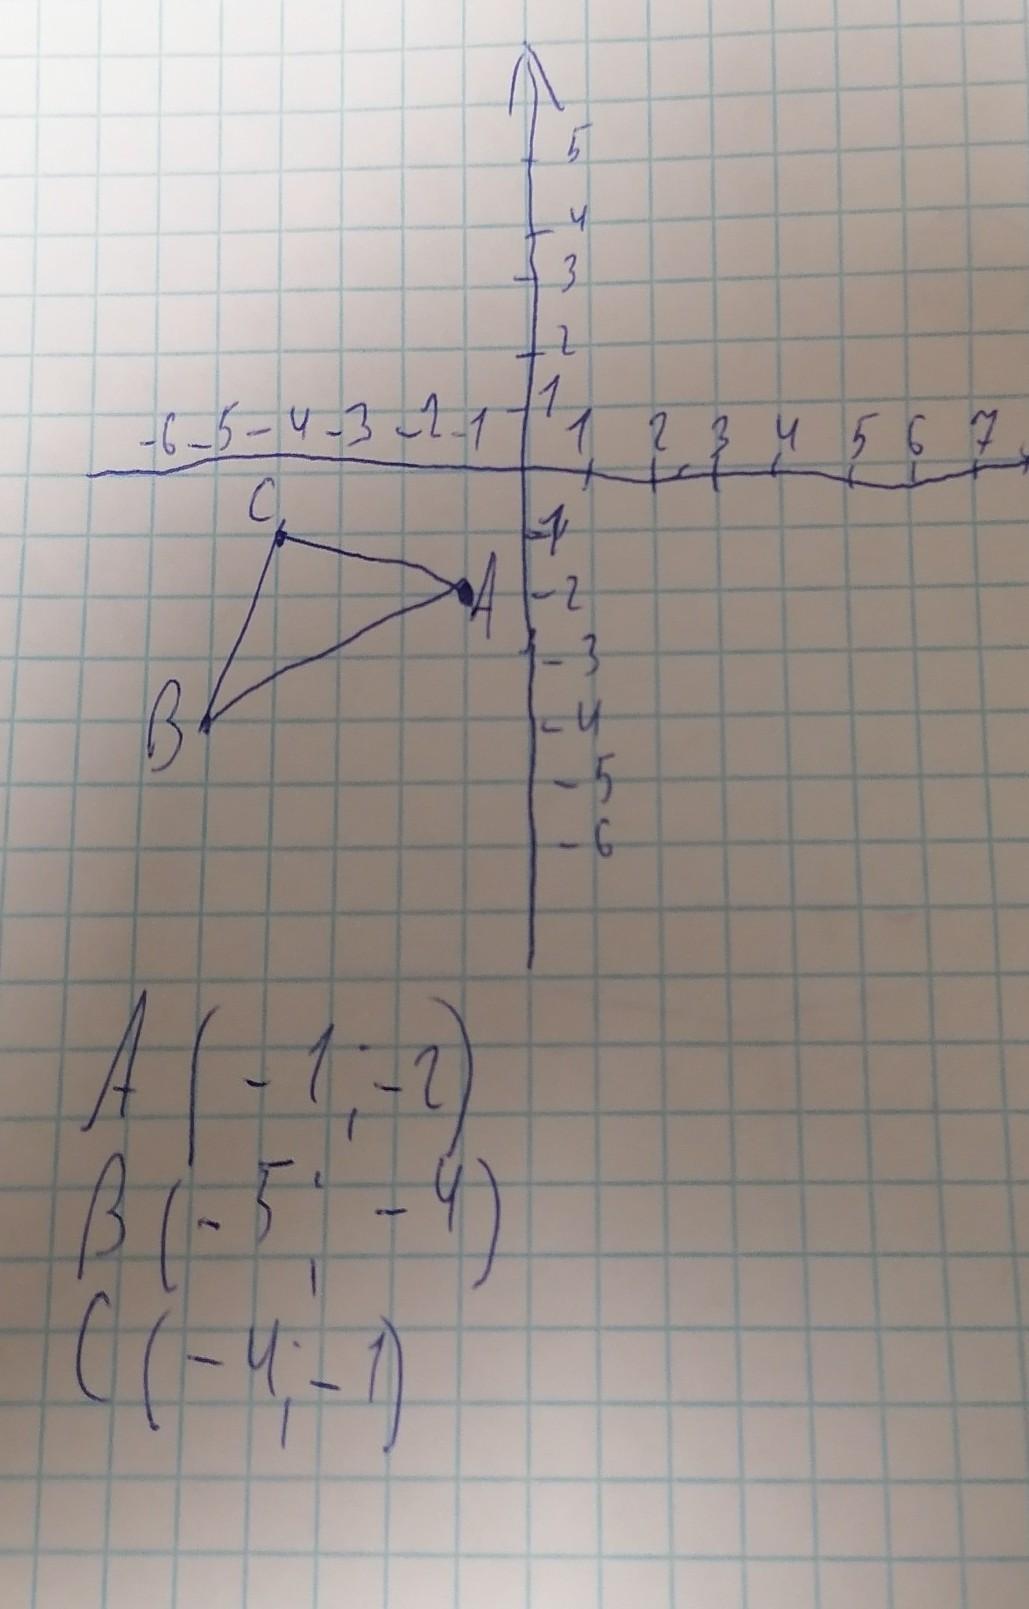 5
4
3
2
1
-6 -5 -4 -3 -2 -1 1 2 3 4 5 6 7
C
-1
A -2
-3
B -4
-5
-6
A (-1; -2)
B (-5; -4)
C (-4; -1)